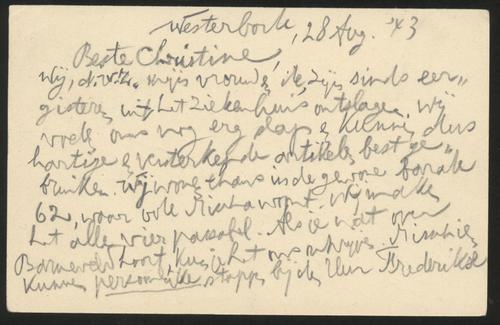 Westerbork, 28 Aug. '43
Beste Christine,
Wij, d.w.z. mijn vrouw & ik zijn sinds eer-
gisteren uit het ziekenhuis ontslagen. Wij
voelen ons nog erg slap & kunnen dus
hartige & versterkende artikelen best ge-
bruiken. Wij wonen thans in de gewone barak
62, waar ook Mischa woont. Wij maken
het alle vier passabel. Als je iets over
Barneveld hoort, kun je het ons schrijven. Misschien
kunnen persoonlijke stappen bij den Heer Frederiks